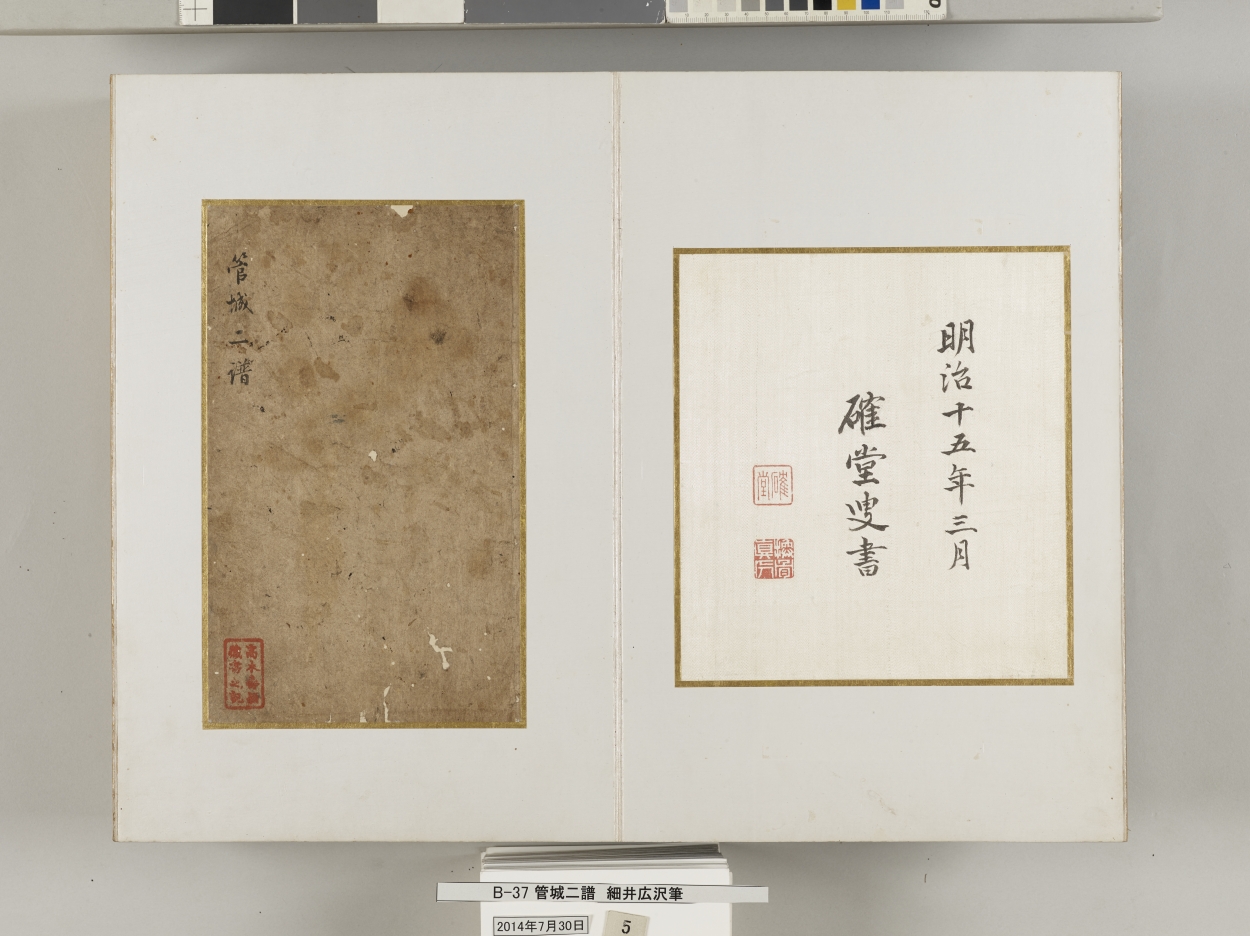 明治十五年三月
確堂叟書
確堂
管城二譜
B-37 管城二譜 細井広沢筆
2014年7月30日
5